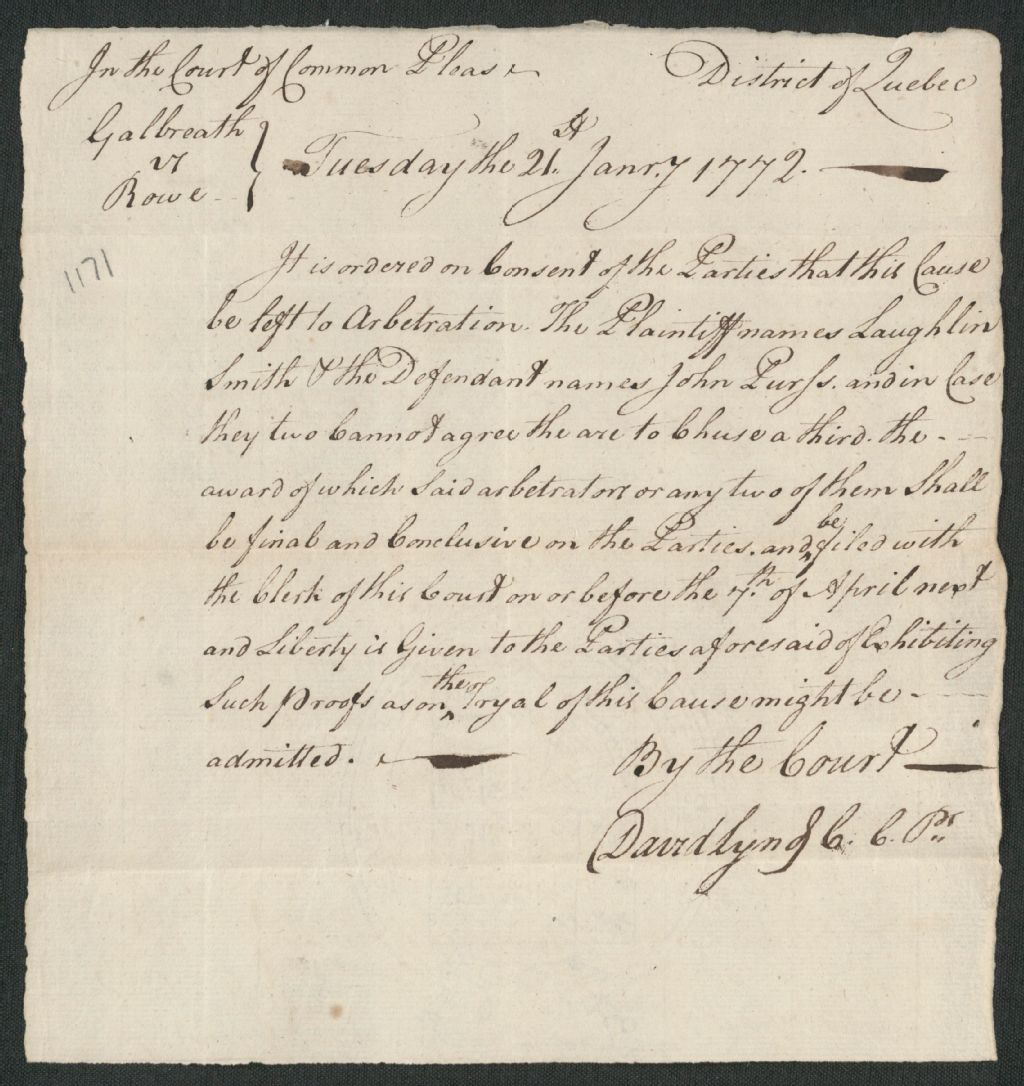 In the Court of Common Pleas District of Quebec
Galbreath
vs
Rowe
Tuesday the 21st Janr.y 1772.
1171
It is ordered on Consent of the Parties that this Cause
be left to Arbetration. The Plaintiff names Laughlin
Smith & the Defendant names John Purss. and in Case
they two Cannot agree the are to Chuse a third. the
award of which Said arbetrators or any two of them Shall
be final and Conclusive on the Parties. and be filed with
the Clerk of this Court on or before the 7th of April next
and Liberty is Given to the Parties aforesaid of Exhibiting
Such proofs as on the Tryal of this Cause might be
admitted.
By the Court
David Lynd C. C. Ps